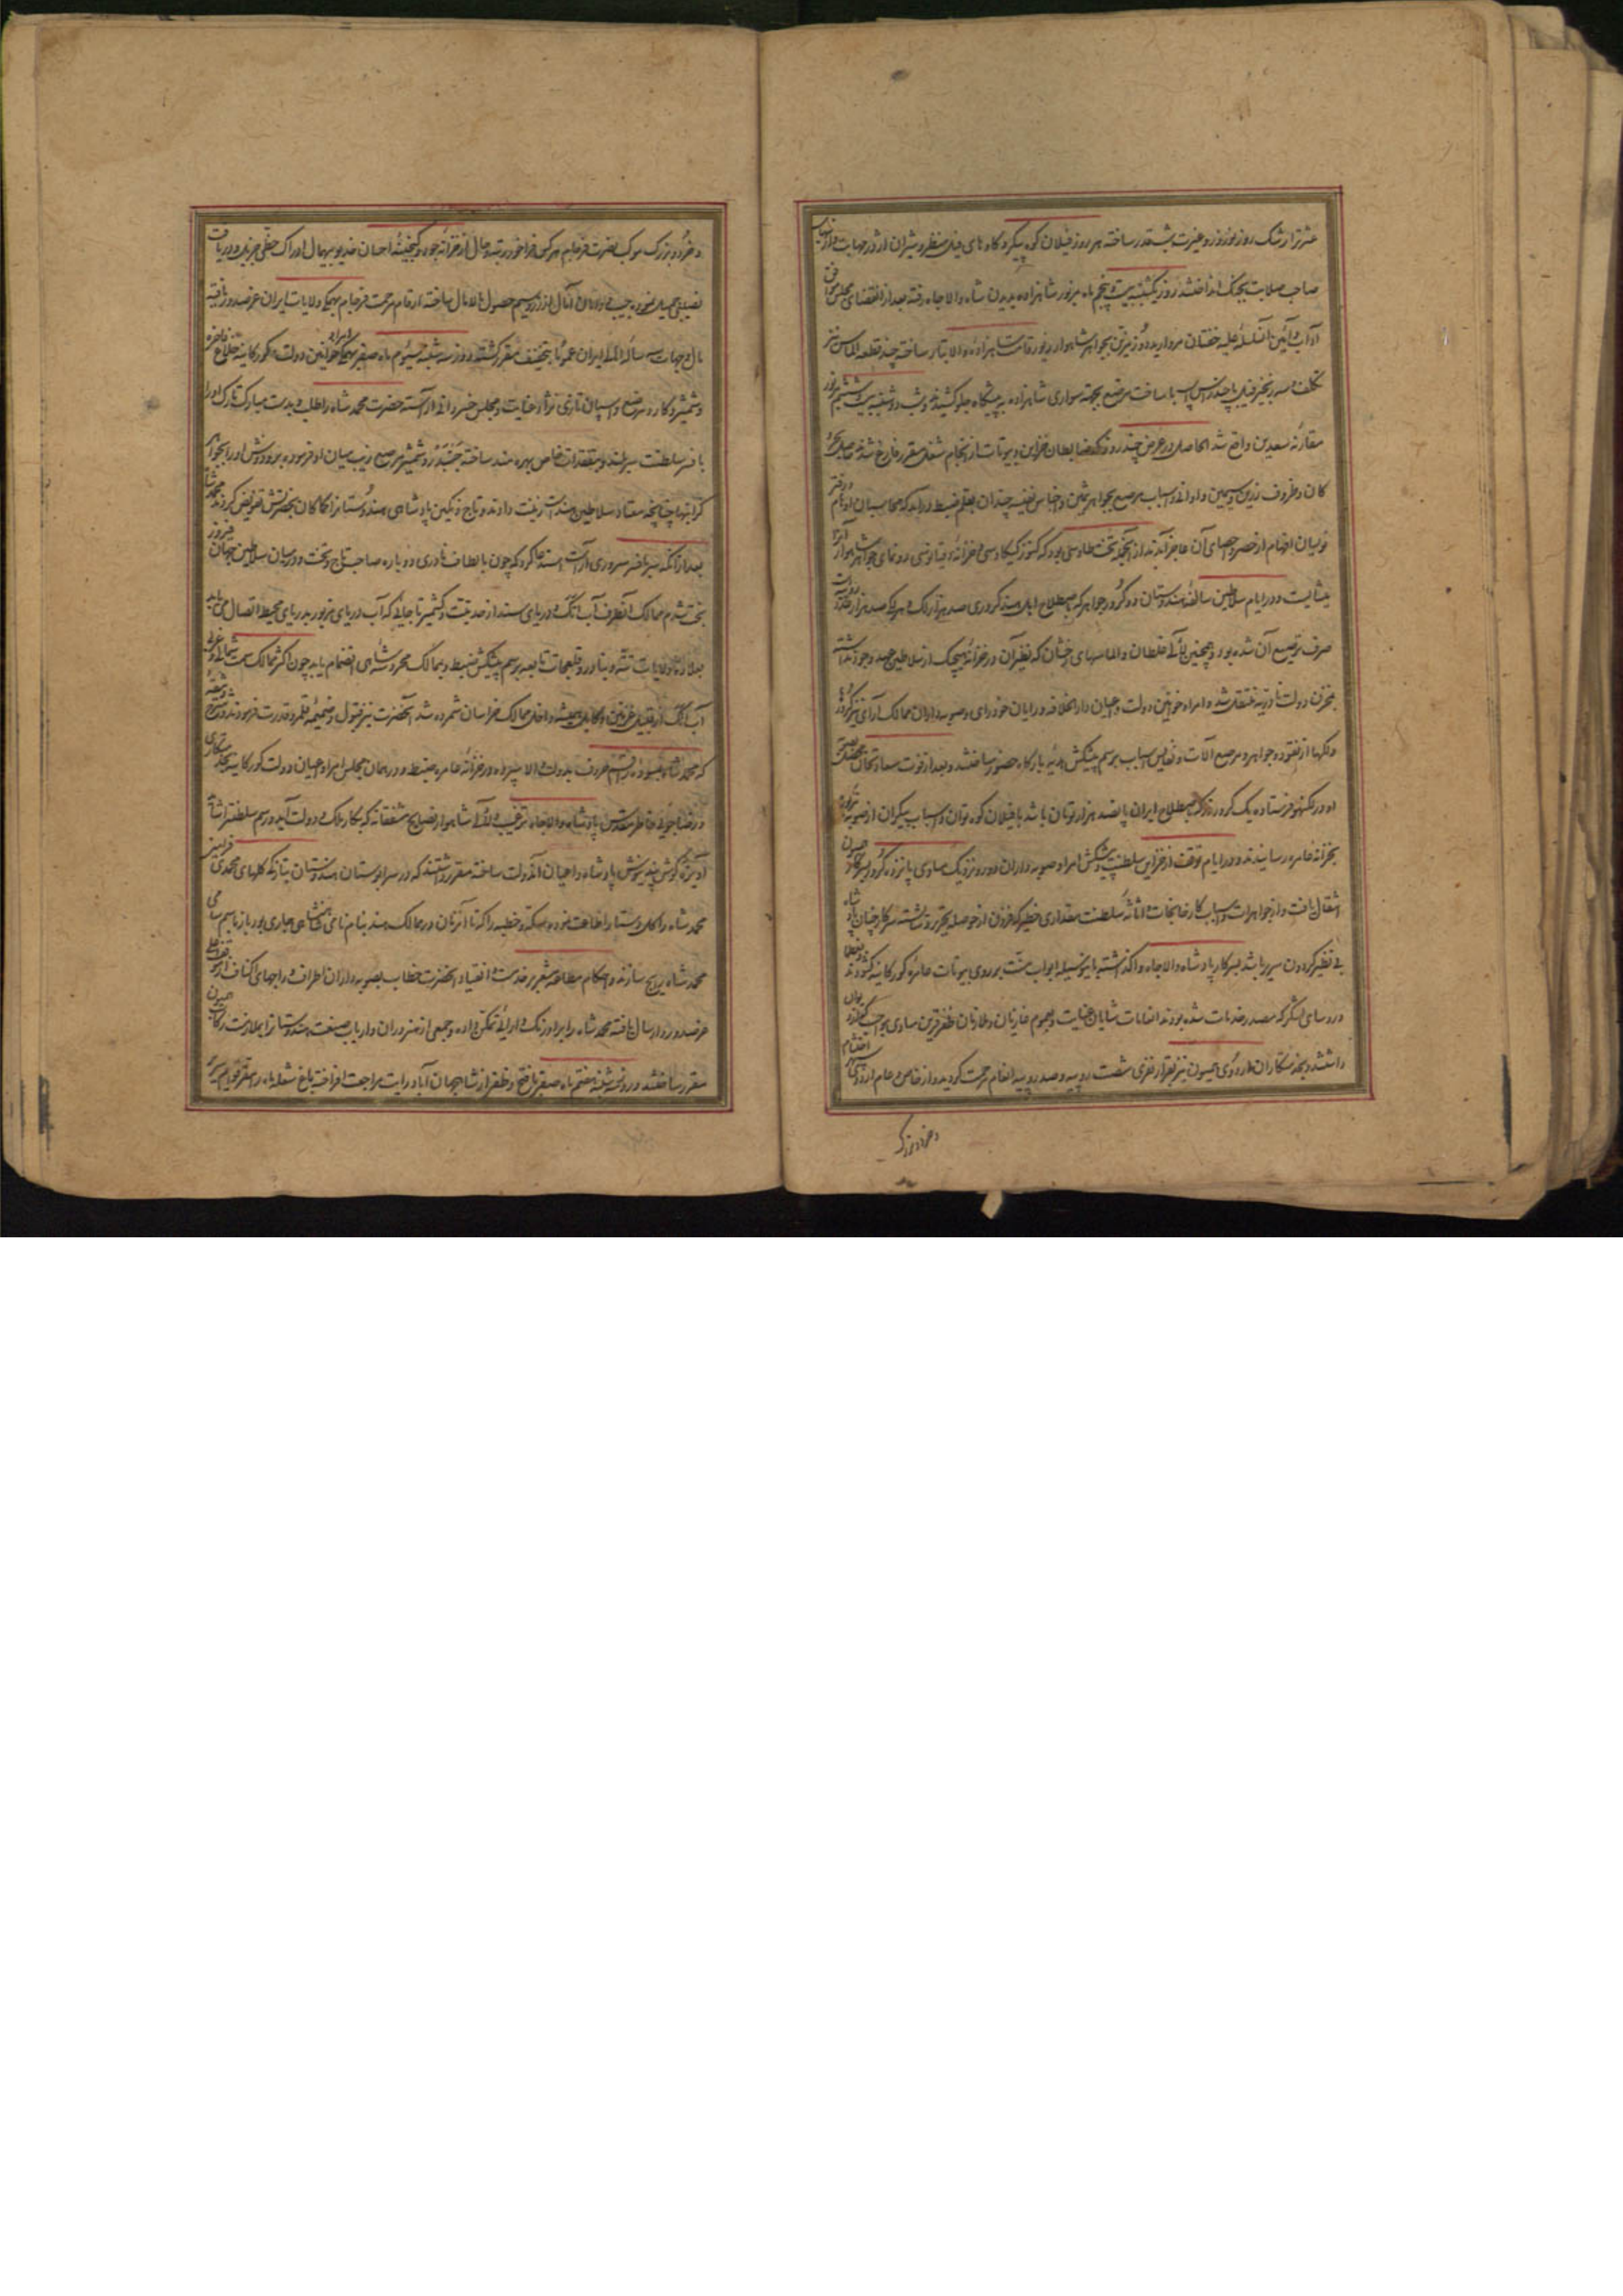 عشرت زار رشک روز نوروز و غیرت شب قدر ساخته هر روز فیلان کوه پیکر و کاوهای فیل منظر و شیران اژدر مهابت و
صاحب صلابت بجنک انداختند روز یکشنبه بیست و پنجم ماه مزبور شاهزاده بدیدن شاه والاجاه رفته بعد از انقضای مجلس موافق
آداب و آئین آنسلسله علیه خفتان مروارید دوز مزین بجواهر شاهوار زیور قامت شاهزادۀ والاتبار ساخته چند قطعه الماس نیز
تکلف و سه زنجیر فیل با پنج راس اسب با ساخت مرصع بجهته سواری شاهزاده به پیشکاه جلو کشیدند و شب دوشنبه بیست و ششم مزبور
مقارنه سعدین واقع شد الحاصل در عرض چند روز که ضابطان خزاین و بیوتات از انجام شغل مقرر فارغ شدند
کان و ظروف زرین و سیمین و اوانی و اسباب مرصع بجواهر ثمین و اجناس نفیسه چندان بقلم ضبط درآمد که محاسبان اوهام و دفتر
نویسان افهام از حصر و احصای آن عاجز آیند از آنجمله تخت طاوسی بود که کنوز کیکاوسی و خزانۀ دقیانوسی رونمای جواهر شاهوار آنرا
نشایست و در ایام سلاطین سالفه هندوستان دو کرور جواهر که باصطلاح اهل هند کروری صد هزار لک و هر لک صد هزار
صرف ترصیع آن شده بود و همچنین لآلی غلطان و الماسهای رخشان که نظیر آن در خزانۀ هیچیک از سلاطین عهد وجود نداشته
بمخزن دولت نادریه منتقل شد و امراء و خوانین دولت و اعیان دارالخلافه و رایان خودرای و صوبه داران ممالک آرای نیز کرورها
و لکها از نقود و جواهر و مرصع آلات و نفایس اسباب برسم پیشکش هدیه بارکاه حضور ساختند و بعد از فوت سعادتخان
او در لکنهو فرستاده یک کرور زر که باصطلاح ایران پانصد هزار تومان باشد با فیلان کوه توان و اسباب بیکران از صوبه مزبوره
بخزانۀ عامره رسانیدند و در ایام توقف از خزاین سلطنت و پیشکش امراء و صوبه داران دور و نزدیک مساوی پانزده کرور بسرکار همیون
انتقال یافت و از جواهرات و اسباب کارخانجات اثاثۀ سلطنت مقداری خطیر که فزون از حوصلۀ تحریر و
بی نظیر کردون سریر باشد بسرکار پادشاه والاجاه واکذاشته باینوسیله ابواب منت بر روی بیوتات عامره کورکانیه کشودند
و رؤسای لشکر که مصدر خدمات شده بودند انعامات شایان عنایت و عموم غازیان و ملازمان ظفر قرین مساوی مواجب
داشتند و بخدمتکاران اردوی همیون نیز نفراً نفری شصت روپیه و صد روپیه انعام مرحمت کردید و از خاص و عام اردوی
و خرد و بزرک
و خرد و بزرک موکب نصرت فرجام هر کس فراخور رتبه و حال از خزانه جود و کنجینۀ احسان خدیو بیهمال ادراک حظی جزیل و دریافت
نصیبی جمیل نموده جیب و دامان آمال از زر و سیم حصول مالامال ساخته ارقام مرحمت فرجام بهمکی ولایات ایران عز صدور یافته
مال و جهات سه ساله اهل ایران عموماً بتخفیف مقرر کشته و روز سه شنبه سیوم ماه صفر بهمکی امراء و خوانین دولت کورکانیه خلاع فاخره
و شمشیر و کارد مرصع و اسپان تازی نژاد عنایت و مجلس خسروانی آراسته حضرت محمد شاه را طلب و بدست مبارک تارک او را
بافسر سلطنت سربلند و بتفقدات خاص بهره مند ساخته جَیَندَر و شمشیر مرصع زیب میان او فرموده بر و دوش او را بجواهر
کرانبها چنانچه معتاد سلاطین هند است زینت دادند و تاج و نکین پادشاهی هندوستانرا کماکان بحضرتش تفویض کردند محمد شاه
بعد از آنکه سر بافسر سروری آراست استدعا کرد که چون بالطاف نادری دوباره صاحب تاج و تخت و در میان سلاطین جهان فیروز
بخت شدم ممالک آنطرف آب اتک و دریای سند از حد تبت و کشمیر تا جائی که آب دریای مزبور بدریای محیط اتصال می یابد
بعلاوه ولایات تتّه و بنادر و قلعجات تابعه برسم پیشکش ضبط و بممالک محروسه شاهی انضمام یابد چون اکثر ممالک سمت شمالی و غربی
آب اتک از قبیل غزنین و کابل همیشه داخل ممالک خراسان شمرده شد آنحضرت نیز قبول و ضمیمه قلمرو قدرت فرمودند
که محمد شاه بود ز قسم ظروف بدولت والا سپرده در خزانۀ عامره ضبط و در همان مجلس امراء و اعیان دولت کورکانیه
و رضاجوئی خاطر مقدس پادشاه والاجاه ترغیب و لآلی شاهوار نصایح مشفقانه که بکار ملک و دولت آید و رسم سلطنت را شاید
آویزۀ کوش پند نیوش پادشاه و اعیان آندولت ساخته مقرر داشتند که در سرابوستان هندوستان بتازکی کلهای محمدی
محمد شاه را کل دستار اطاعت نموده سکه و خطبه را که تا آنزمان در ممالک هند بنام نامی شاهنشاهی جاری بود باز باسم سامی
محمد شاه رایج سازند و احکام مطاعه مشعر بر خدمت و انقیاد آنحضرت خطاب بصوبه داران اطراف و راجهای اکناف
عز صدور و ارسال یافته محمد شاه را بر اورنک دارائی تمکن داده و جمعی از هنروران و ارباب صنعت هندوستانرا بملازمت رکاب همیون
مقرر ساختند و روز شنبه هفتم ماه صفر با فتح و ظفر از شاهجهان آباد رایت مراجعت افراخته باغ شعله ماه را